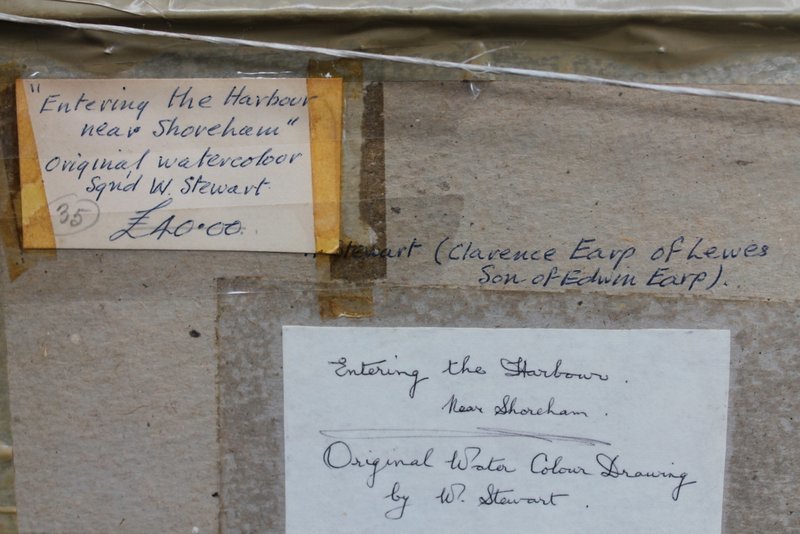 "Entering the Harbour
near Shoreham"
Original watercolour
Sgnd W. Stewart
35
£40.00
Stewart (Clarence Earp of Lewes
Son of Edwin Earp).
Entering the Harbour.
Near Shoreham.
Original Water Colour Drawing
by W. Stewart.